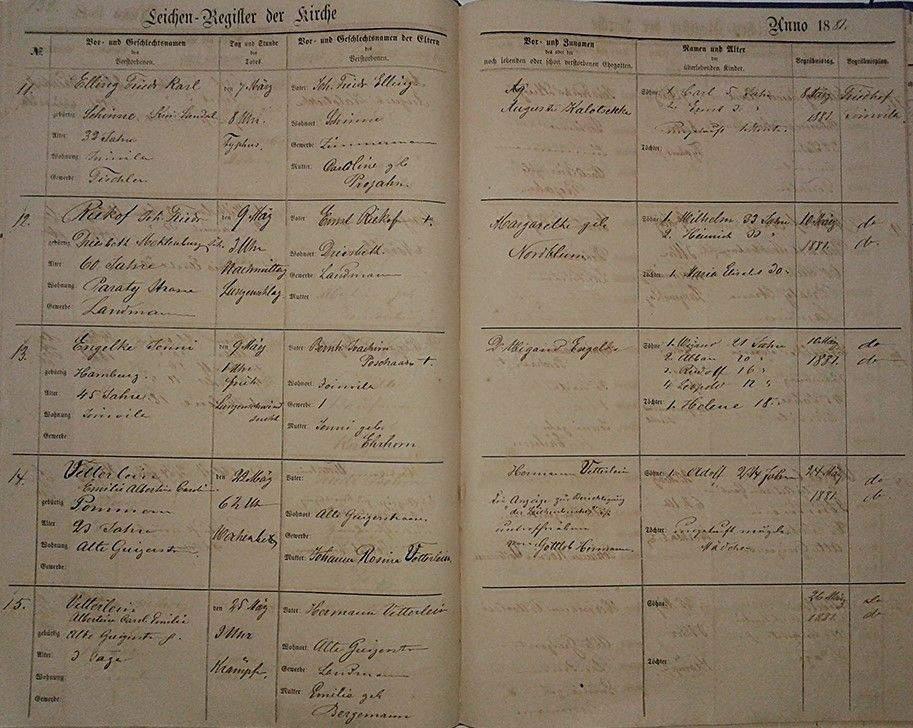 Leichen-Register der Kirche
Anno 1881.
№
Vor- und Geschlechtsnamen des Verstorbenen.
Tag und Stunde des Todes.
Vor- und Geschlechtsnamen der Eltern des Verstorbenen.
Vor- und Zunamen des oder der noch lebenden oder schon verstorbenen Ehegatten.
Namen und Alter der überlebenden Kinder.
Begräbnisstag.
Begräbnissplatz.
11.
Elling Friedr Karl
gebürtig Schinne,
Alter 32 Jahre
Wohnung Joinvile
Gewerbe Tischler
den 7 März
8 Uhr.
Typhus.
Vater: Joh. Friedr Elling
Wohnort Schinne
Gewerbe Zimmermann
Mutter: Caroline gb
Projahn.
Auguste
Söhne: 1. Carl 5 Jahr
2. Ernst 3.
Töchter:
8 März
1881.
Friedhof
Joinvile
12.
Joh. Friedr
gebürtig Mecklenburg
Alter 60 Jahre
Wohnung Paraty Strasse
Gewerbe Landmann
den 9 März
3 Uhr
Nachmittag
Lungenschlag.
Vater: Ernst +
Wohnort
Gewerbe Landmann
Mutter:
Margarethe geb
Nordblum
Söhne: 1. Wilhelm 33 Jahr
2. Heinrich 32
Töchter: 1. Maria 30
10 März
1881.
do
do.
13.
Engelke Jenni
gebürtig Hamburg.
Alter 45 Jahre
Wohnung Joinvile
Gewerbe:
den 9 März
1 Uhr
früh
Lungenschwind
sucht
Vater: Bernh Joachim
Poschaan +
Wohnort Joinvile
Gewerbe: 1
Mutter: Jenni geb
Ehrhorn
Dr Wigand Engelke
Söhne: 1. 21 Jahr
2. Alban 20 "
3. Rudolf 16 "
4. Leopold 12 "
Töchter: 1. Helene 18.
10 März
1881.
do
do
14.
Vetterlein
Emilie Albertin Carol
gebürtig Pommern
Alter 23 Jahre
Wohnung Alte Guigerstr
Gewerbe:
den 22 März
6½ Uhr
Wochenbett
Vater:
Wohnort Alte Guigerstrasse
Gewerbe:
Mutter: Johanna Rosina Vetterlein
Hermann Vetterlein
die Anzeige zur Berichtigung
unterschrieben
von Gottlob Hermann
Söhne: 1. Adolf 2¾ Jahr
Töchter: Ungetauft
Mädchen
24 März
1881.
do
do
15.
Vetterlein
Albertin Carol Emilie
gebürtig Alte Guigerstr
Alter: 3 Tage
Wohnung:
Gewerbe:
den 25 März
3 Uhr
Krämpfe.
Vater: Hermann Vetterlein
Wohnort Alte Guigerstr
Gewerbe: Landmann
Mutter Emilie geb
Bergemann
Söhne:
Töchter
26 März
1881.
do
do